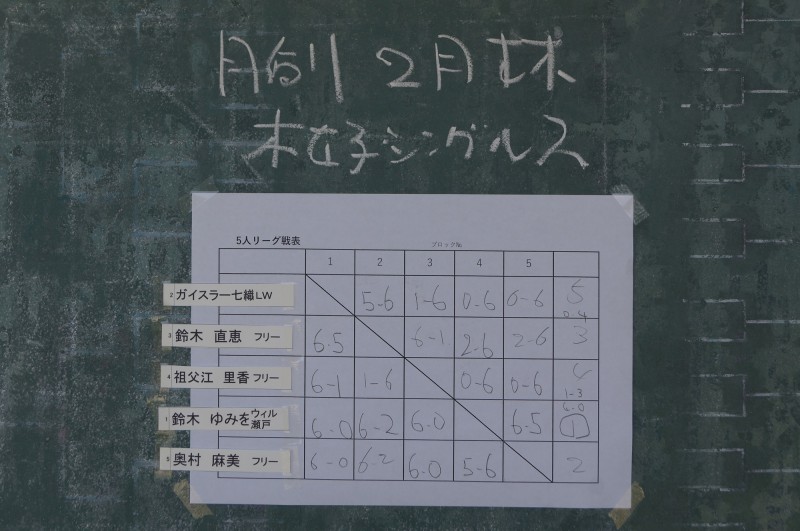 月例 2月 末
木 女子シングルス
5人リーグ戦表 ブロック№
1 2 3 4 5
2 ガイスラー七織LW 5-6 1-6 0-6 0-6 5 0-4
3 鈴木 直恵 フリー 6-5 6-1 2-6 2-6 3
4 祖父江 里香 フリー 6-1 1-6 0-6 0-6 4 1-3
1 鈴木 ゆみを ウィル瀬戸 6-0 6-2 6-0 6-5 1
5 奥村 麻美 フリー 6-0 6-2 6-0 5-6 2